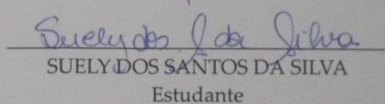 Suely dos S da Silva
SUELY DOS SANTOS DA SILVA
Estudante